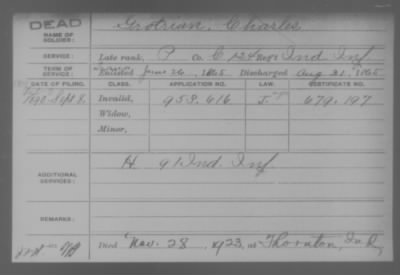 DEAD
NAME OF SOLDIER: Grotrian, Charles
SERVICE: Late rank, P Co. C, 124 Reg't Ind Inf
TERM OF SERVICE: Enlisted 1865 Discharged Aug 31, 1865
DATE OF FILING. CLASS. APPLICATION NO. LAW. CERTIFICATE NO.
1890 Sept 8, Invalid, 953.616 J 679.197
Widow,
Minor,
ADDITIONAL SERVICES: H 91 Ind. Inf.
REMARKS:
Died Nov. 28, 1923, at Thornton, Ind